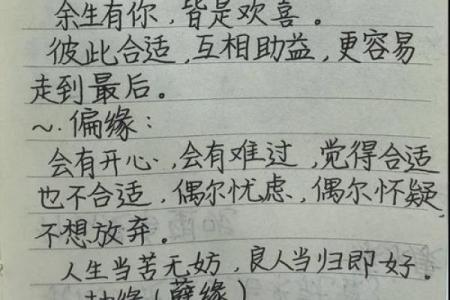 余生有你，皆是欢喜。
彼此合适，互相助益，更容易
走到最后。
~.偏缘：
会有开心，会有难过，觉得合适
也不合适，偶尔忧虑，偶尔怀疑，
不想放弃。
人生当苦无妨，良人当归即好。
劫缘（孽缘）